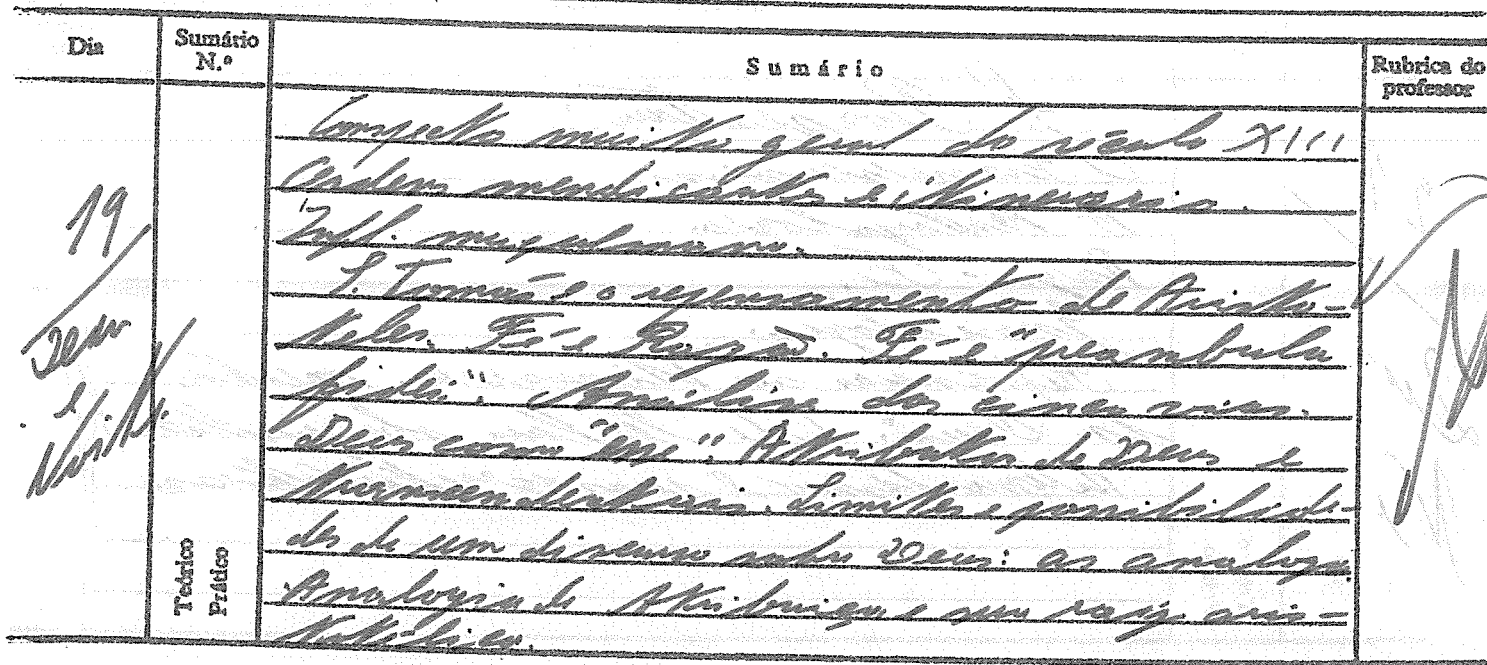 Dia
Sumário N.º
Sumário
Rubrica do professor
Conspecto muito geral do século XIII
Ordens mendicantes e itinerário.
Infl. muçulmana.
S. Tomás e o repensamento de Aristó-
teles. Fé e Razão. Fé e "preambula
fidei". Análise das cinco vias.
Deus como "esse". Atributos de Deus e
transcendentais. Limites e possibilida-
des de um discurso sobre Deus: as analogia
Analogia de Atribuição e sua raiz aris-
totélica.
19
e
Teórico
Prático